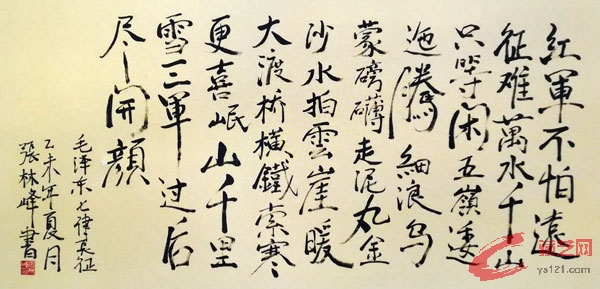 紅軍不怕遠
征难萬水千山
只等闲五嶺逶
迤騰細浪烏
蒙磅礴走泥丸金
沙水拍雲崖暖
大渡桥橫鐵索寒
更喜岷山千里
雪三軍过后
尽開顔
毛泽东七律長征
乙未年夏月
張林峰書
ys121.com